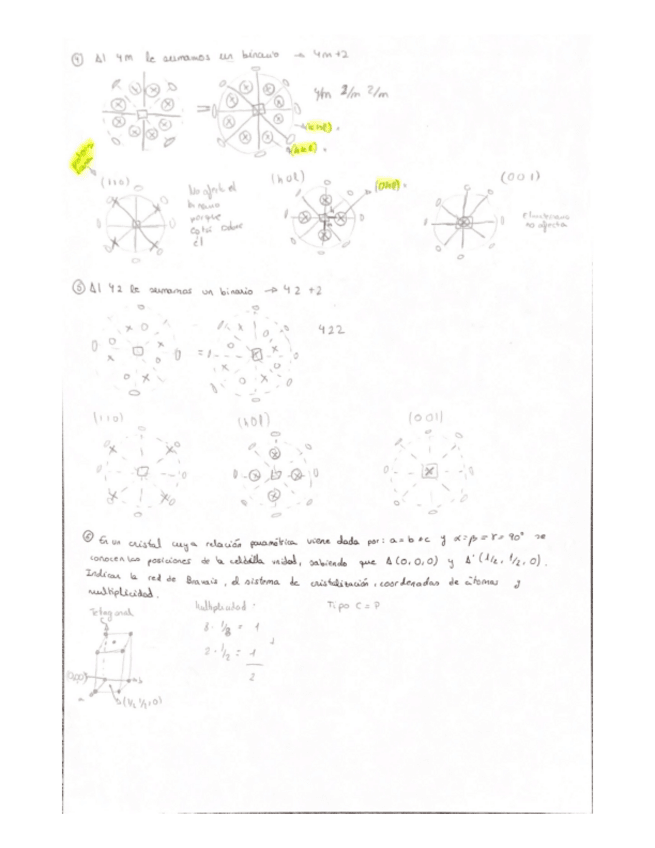 ④ Al 4m le sumamos un binario → 4m+2
=
4/m 2/m 2/m
(hhl)
(hkl)
(110)
No afecta el
binario
porque
está sobre
él
(h0l)
(0kl)
(001)
no afecta
⑤ Al 42 le sumamos un binario → 42 +2
=
422
(110)
(h0l)
(001)
⑥ En un cristal cuya relación paramétrica viene dada por: a=b≠c y α=β=γ=90° se
conocen las posiciones de la celdilla unidad, sabiendo que A(0,0,0) y A'(1/2, 1/2, 0).
Indicar la red de Bravais, el sistema de cristalización, coordenadas de átomos y
multiplicidad.
Tetragonal
Multiplicidad:
Tipo C = P
8 · 1/8 = 1
2 · 1/2 = 1
2
(0,0,0)
b
a
(1/2 1/2 0)